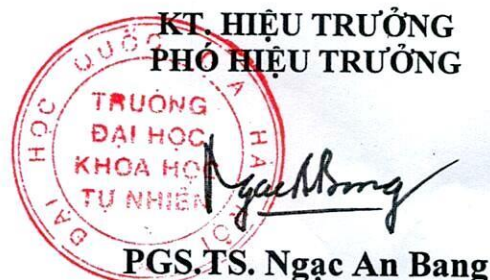 KT. HIỆU TRƯỞNG
PHÓ HIỆU TRƯỞNG
ĐẠI HỌC QUỐC GIA HÀ NỘI
TRƯỜNG
ĐẠI HỌC
KHOA HỌC
TỰ NHIÊN
PGS.TS. Ngạc An Bang